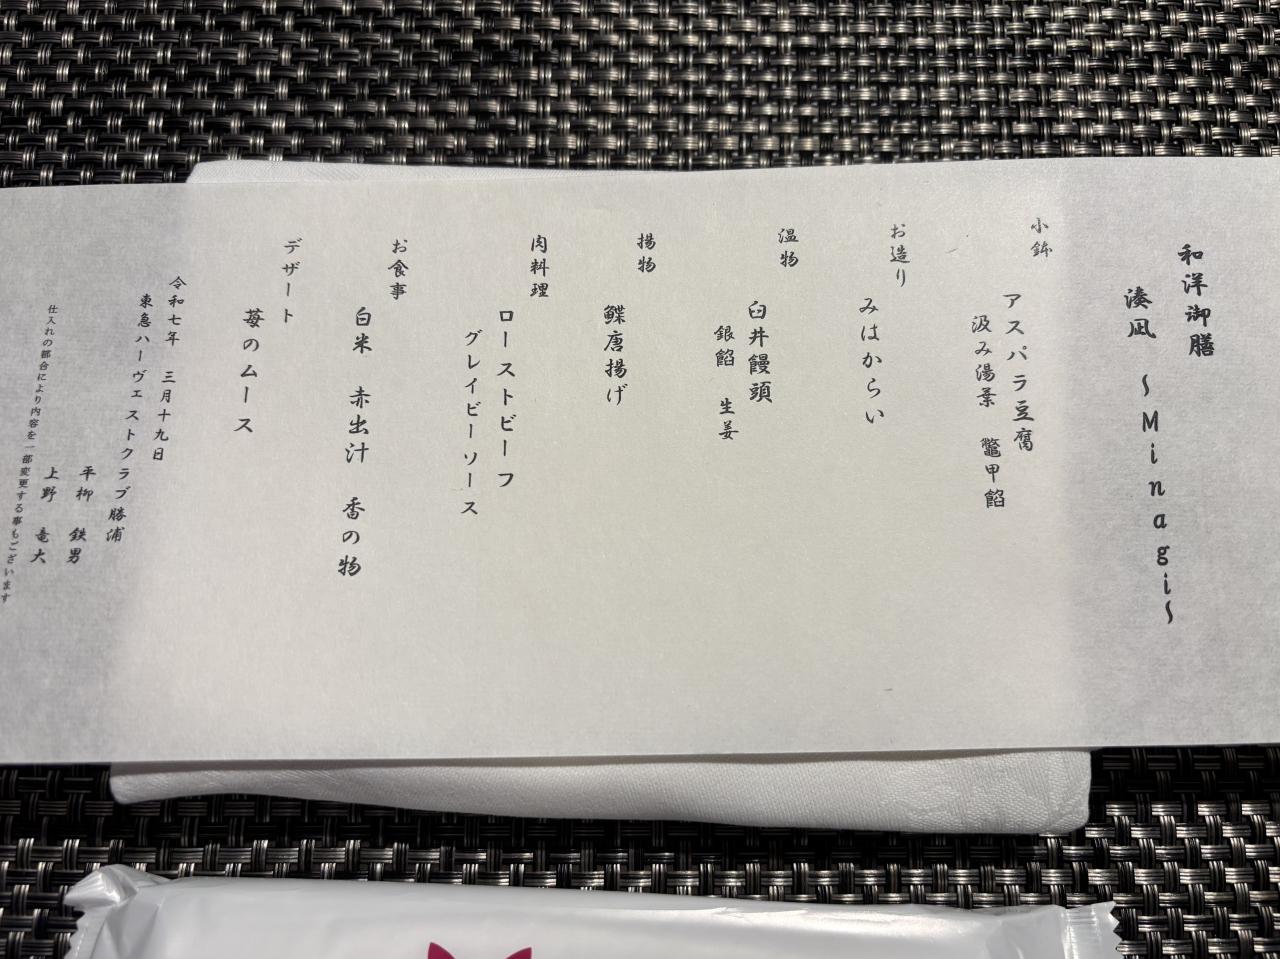 和洋御膳
湊凪 〜Minagi〜
小鉢
アスパラ豆腐
汲み湯葉 鼈甲餡
お造り
みはからい
温物
臼井饅頭
銀餡 生姜
揚物
鰈唐揚げ
肉料理
ローストビーフ
グレイビーソース
お食事
白米 赤出汁 香の物
デザート
苺のムース
令和七年 三月十九日
東急ハーヴェストクラブ勝浦
平柳 鉄男
上野 竜大
仕入れの都合により内容を一部変更する事もございます